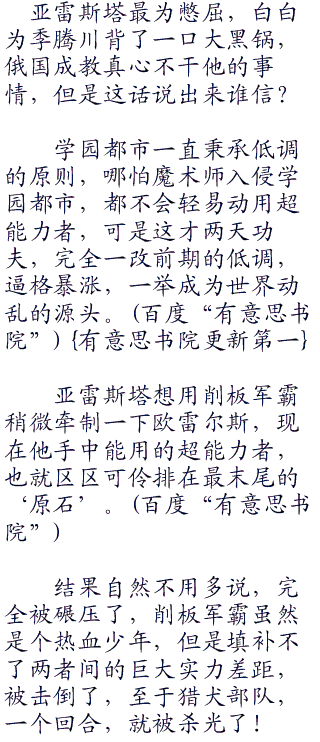 亚雷斯塔最为憋屈，白白
为季腾川背了一口大黑锅，
俄国成教真心不干他的事
情，但是这话说出来谁信？
学园都市一直秉承低调
的原则，哪怕魔术师入侵学
园都市，都不会轻易动用超
能力者，可是这才两天功
夫，完全一改前期的低调，
逼格暴涨，一举成为世界动
乱的源头。(百度“有意思书
院”) {有意思书院更新第一}
亚雷斯塔想用削板军霸
稍微牵制一下欧雷尔斯，现
在他手中能用的超能力者，
也就区区可伶排在最末尾的
‘原石’。(百度“有意思书
院”)
结果自然不用多说，完
全被碾压了，削板军霸虽然
是个热血少年，但是填补不
了两者间的巨大实力差距，
被击倒了，至于猎犬部队，
一个回合，就被杀光了！